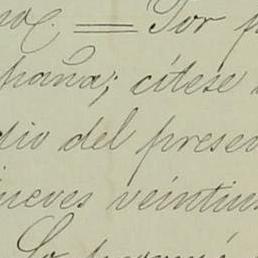 Por
paña; cítese
dio del presen
ueves veintiun
Lo